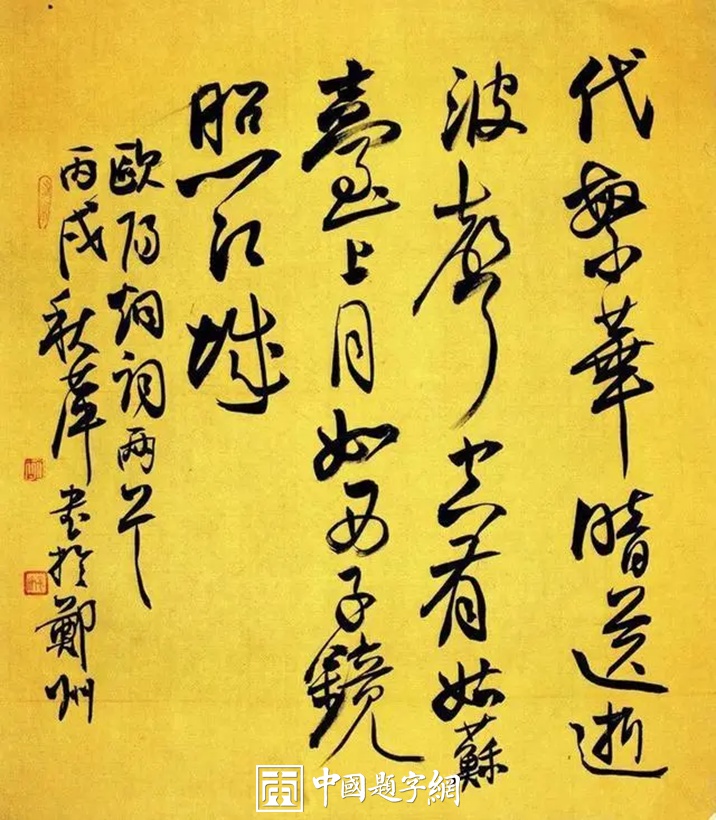 代繁華暗逐逝
波聲空有姑蘇
臺上月如西子鏡
照江城
歐陽炯詞兩首
丙戌秋書於鄭州
中國題字網